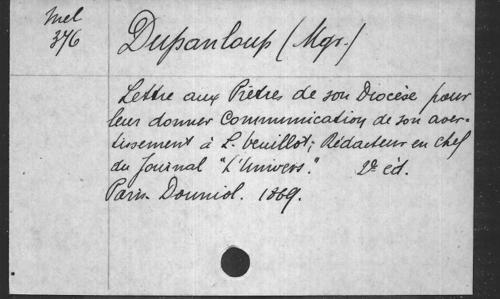 Mel
376
Dupanloup (Mgr.)
Lettre aux Prêtres de son Diocèse pour
leur donner Communication de son aver-
tissement à L. Veuillot; Rédacteur en chef
du Journal "L'Univers." 2e éd.
Paris. Douniol. 1869.